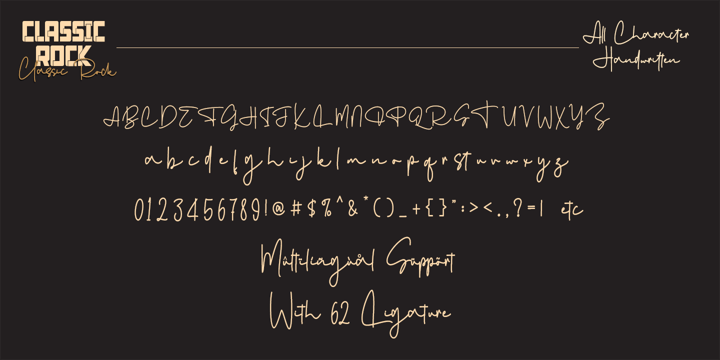 CLASSIC
ROCK
Classic Rock
All Character
Handwritten
ABCDEFGHIJKLMNOPQRSTUVWXYZ
abcdefghijklmnopqrstuvwxyz
0123456789!@#$%^&*()_+{}":><.,?=| etc
Múltilìagúål Süppört
With 62 Ligature